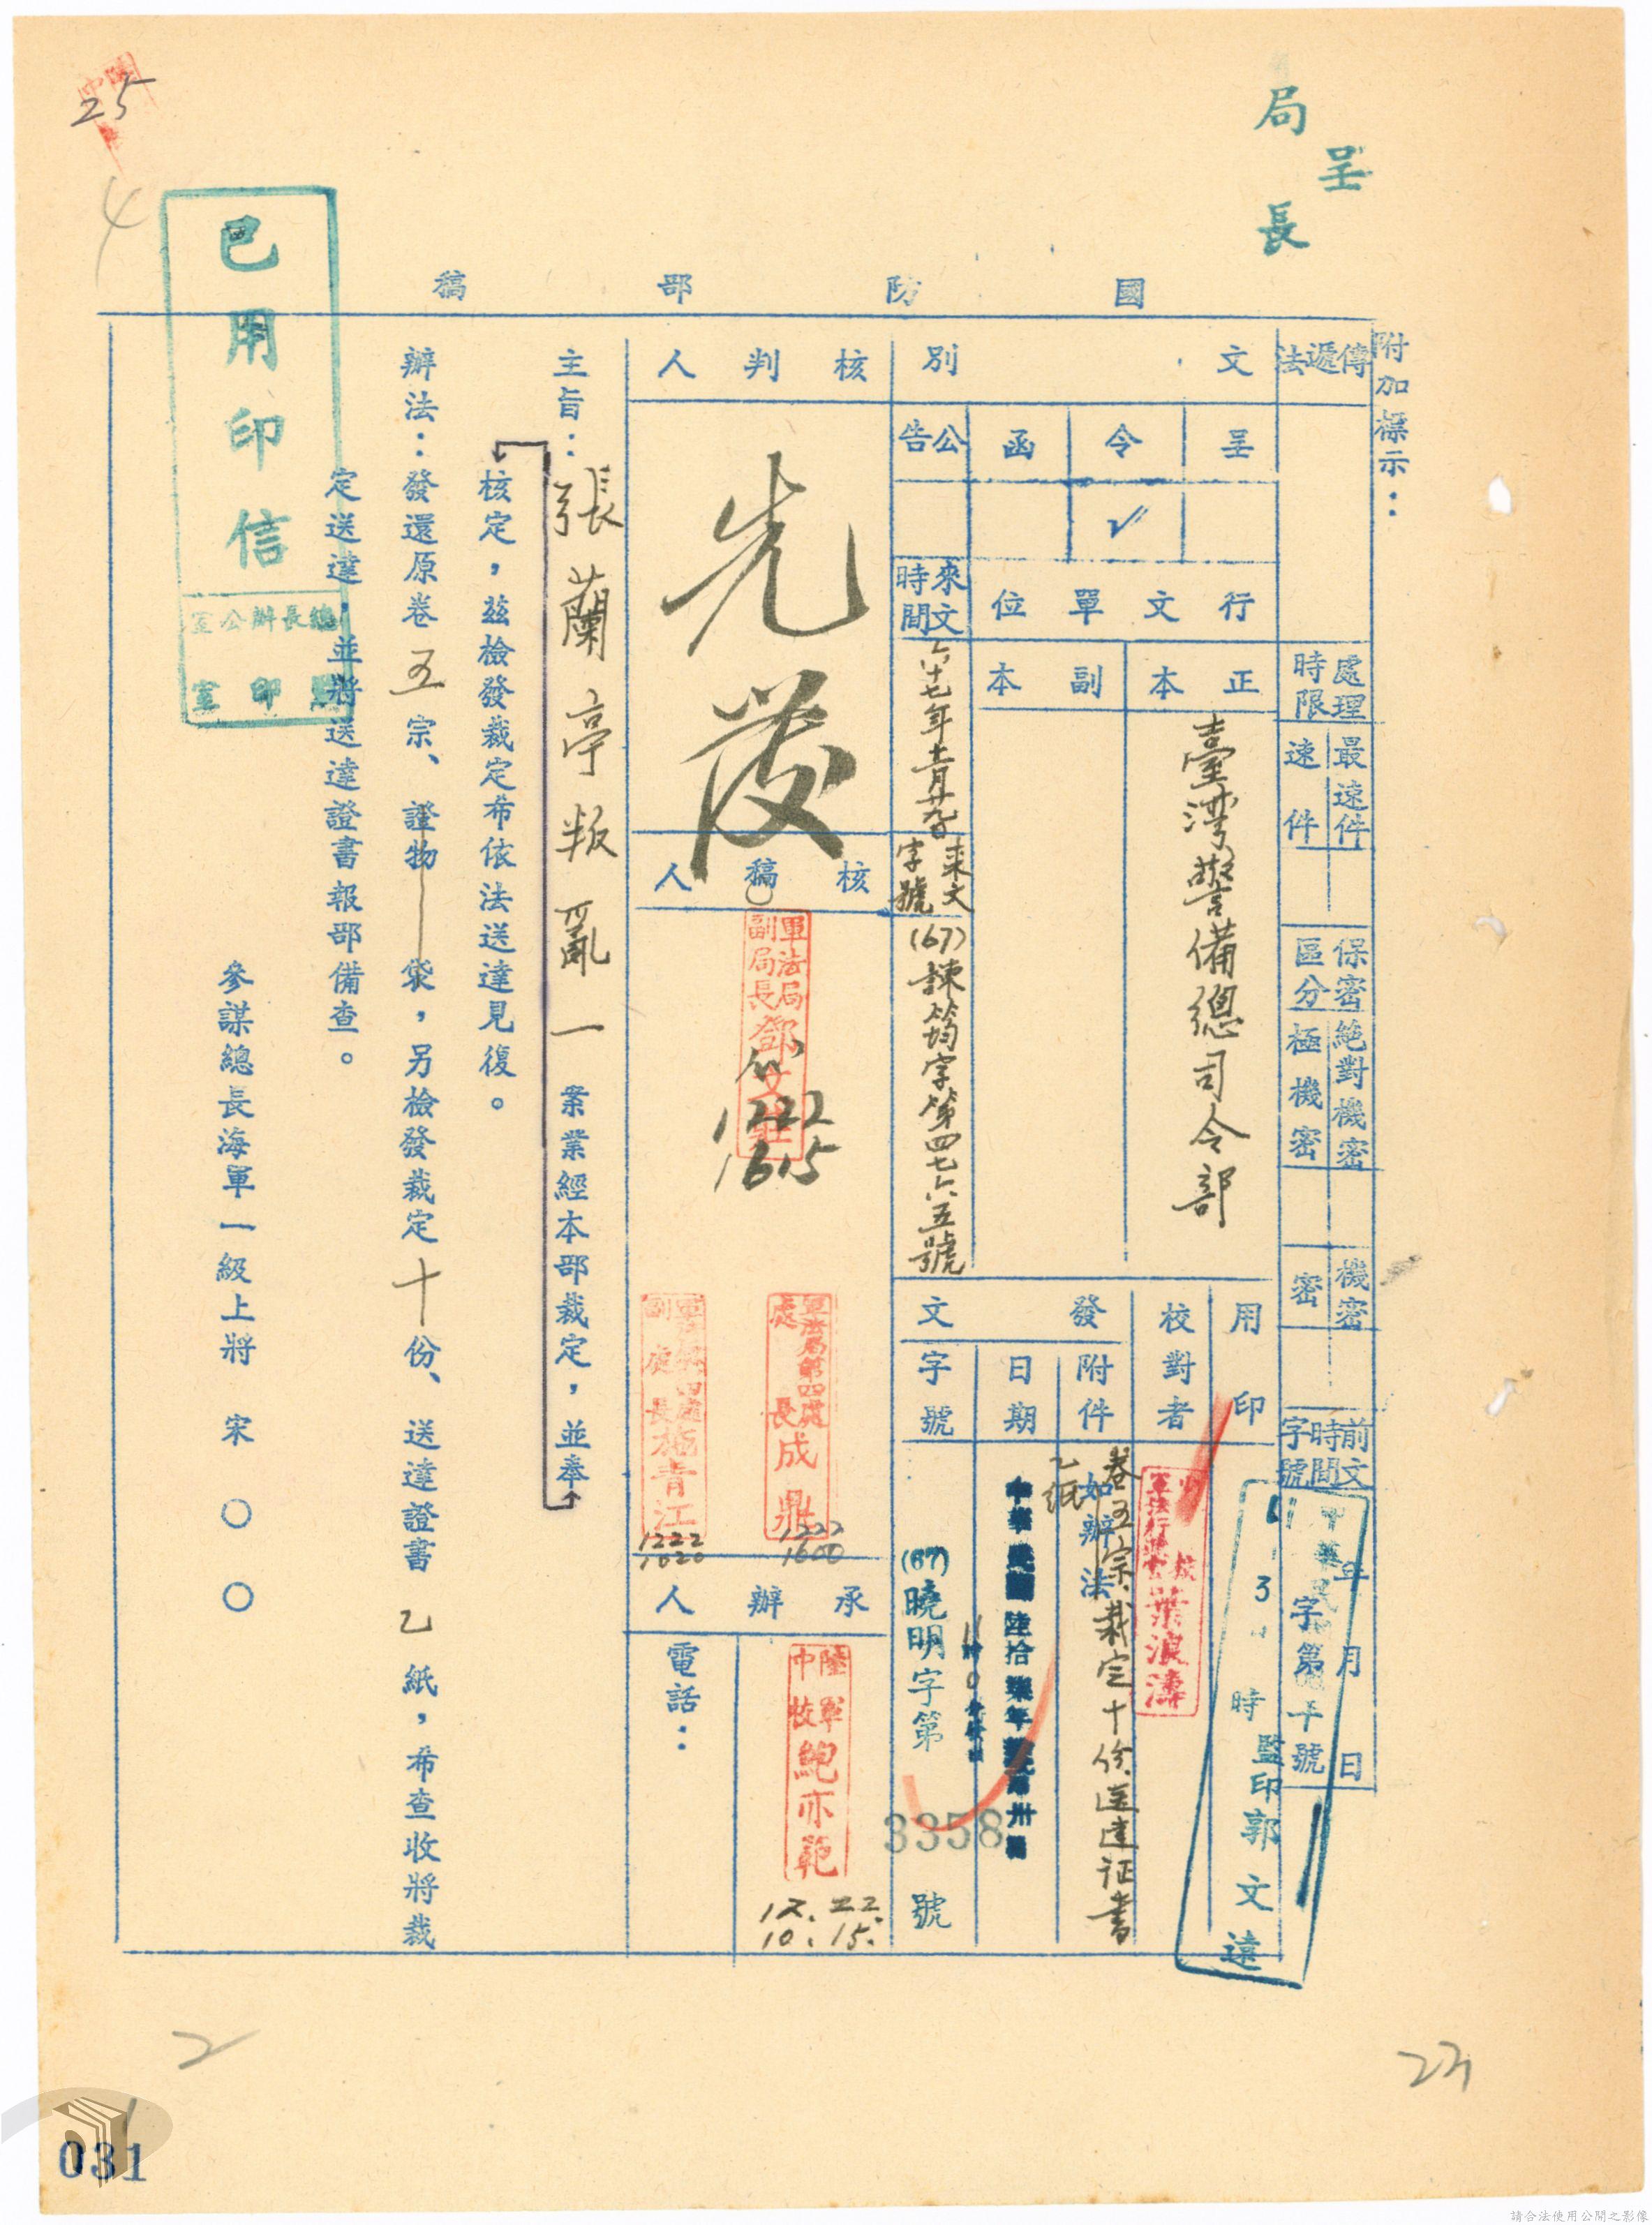 局長
呈
25
4
國防部稿
附加標示：
傳遞法
處理時限
最速件
速件
保密區分
絕對機密
極機密
機密
密
前文時間字號
年月日
字第
號
文別
呈
令
函
公告
✓
行文單位
正本
副本
臺灣警備總司令部
來文時間
六十七年十一月廿九日
來文字號
(67)諫筠字第四七六五號
用印
監印郭文遠
3
時
校對者
葉浪濤
發文
附件
如辦法
卷五宗、裁定十份送達证書
乙紙
日期
中華民國陸拾柒年
字號
(67)曉明字第
3358
號
核判人
先發
核稿人
軍法局副局長鄧文
1222
1615
軍法局第四處處長成鼎
1222
1600
副處長施青江
1222
1020
承辦人
陸軍中校鮑亦範
12.22.
10.15.
電話：
主旨：張蘭亭叛亂一案業經本部裁定，並奉
核定，茲檢發裁定希依法送達見復。
辦法：發還原卷五宗、證物袋，另檢發裁定十份、送達證書乙紙，希查收將裁
定送達，並將送達證書報部備查。
參謀總長海軍一級上將宋○○
已用印信
總長辦公室
監印室
2
23
031
請合法使用公開之影像